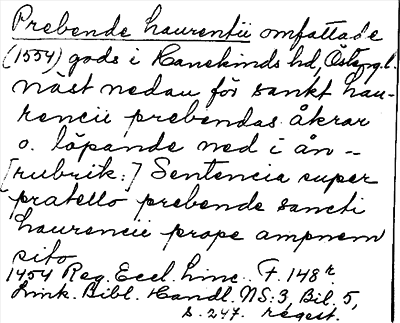 Prebende Laurentii omfattade
(1554) gods i Hanekinds hd, Östergl.
näst nedan för sankt Lau-
rencii prebendas åkrar
o. löpande ned i ån –
[rubrik:] Sentencia super
pratello prebende sancti
Laurencii prope ampnem
sito
1454 Reg. Eccl. Linc. F. 148 r
Link. Bibl. Handl. NS:3, Bil. 5,
s. 247. regest.